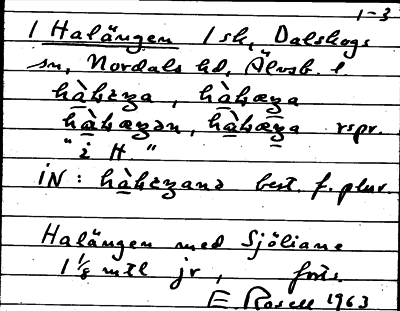 1-3
1 Halängen 1 sk, Dalskogs
sn, Nordals hd, Älvsb. l
hàlɛŋa, hàlæŋa
hàlæŋən, hàlæŋa rspr.
"i H."
iN: hàlɛŋanə best. f. plur.
Halängen med Sjöliane
1 1/8 mtl jr, forts.
E. Rosell 1963